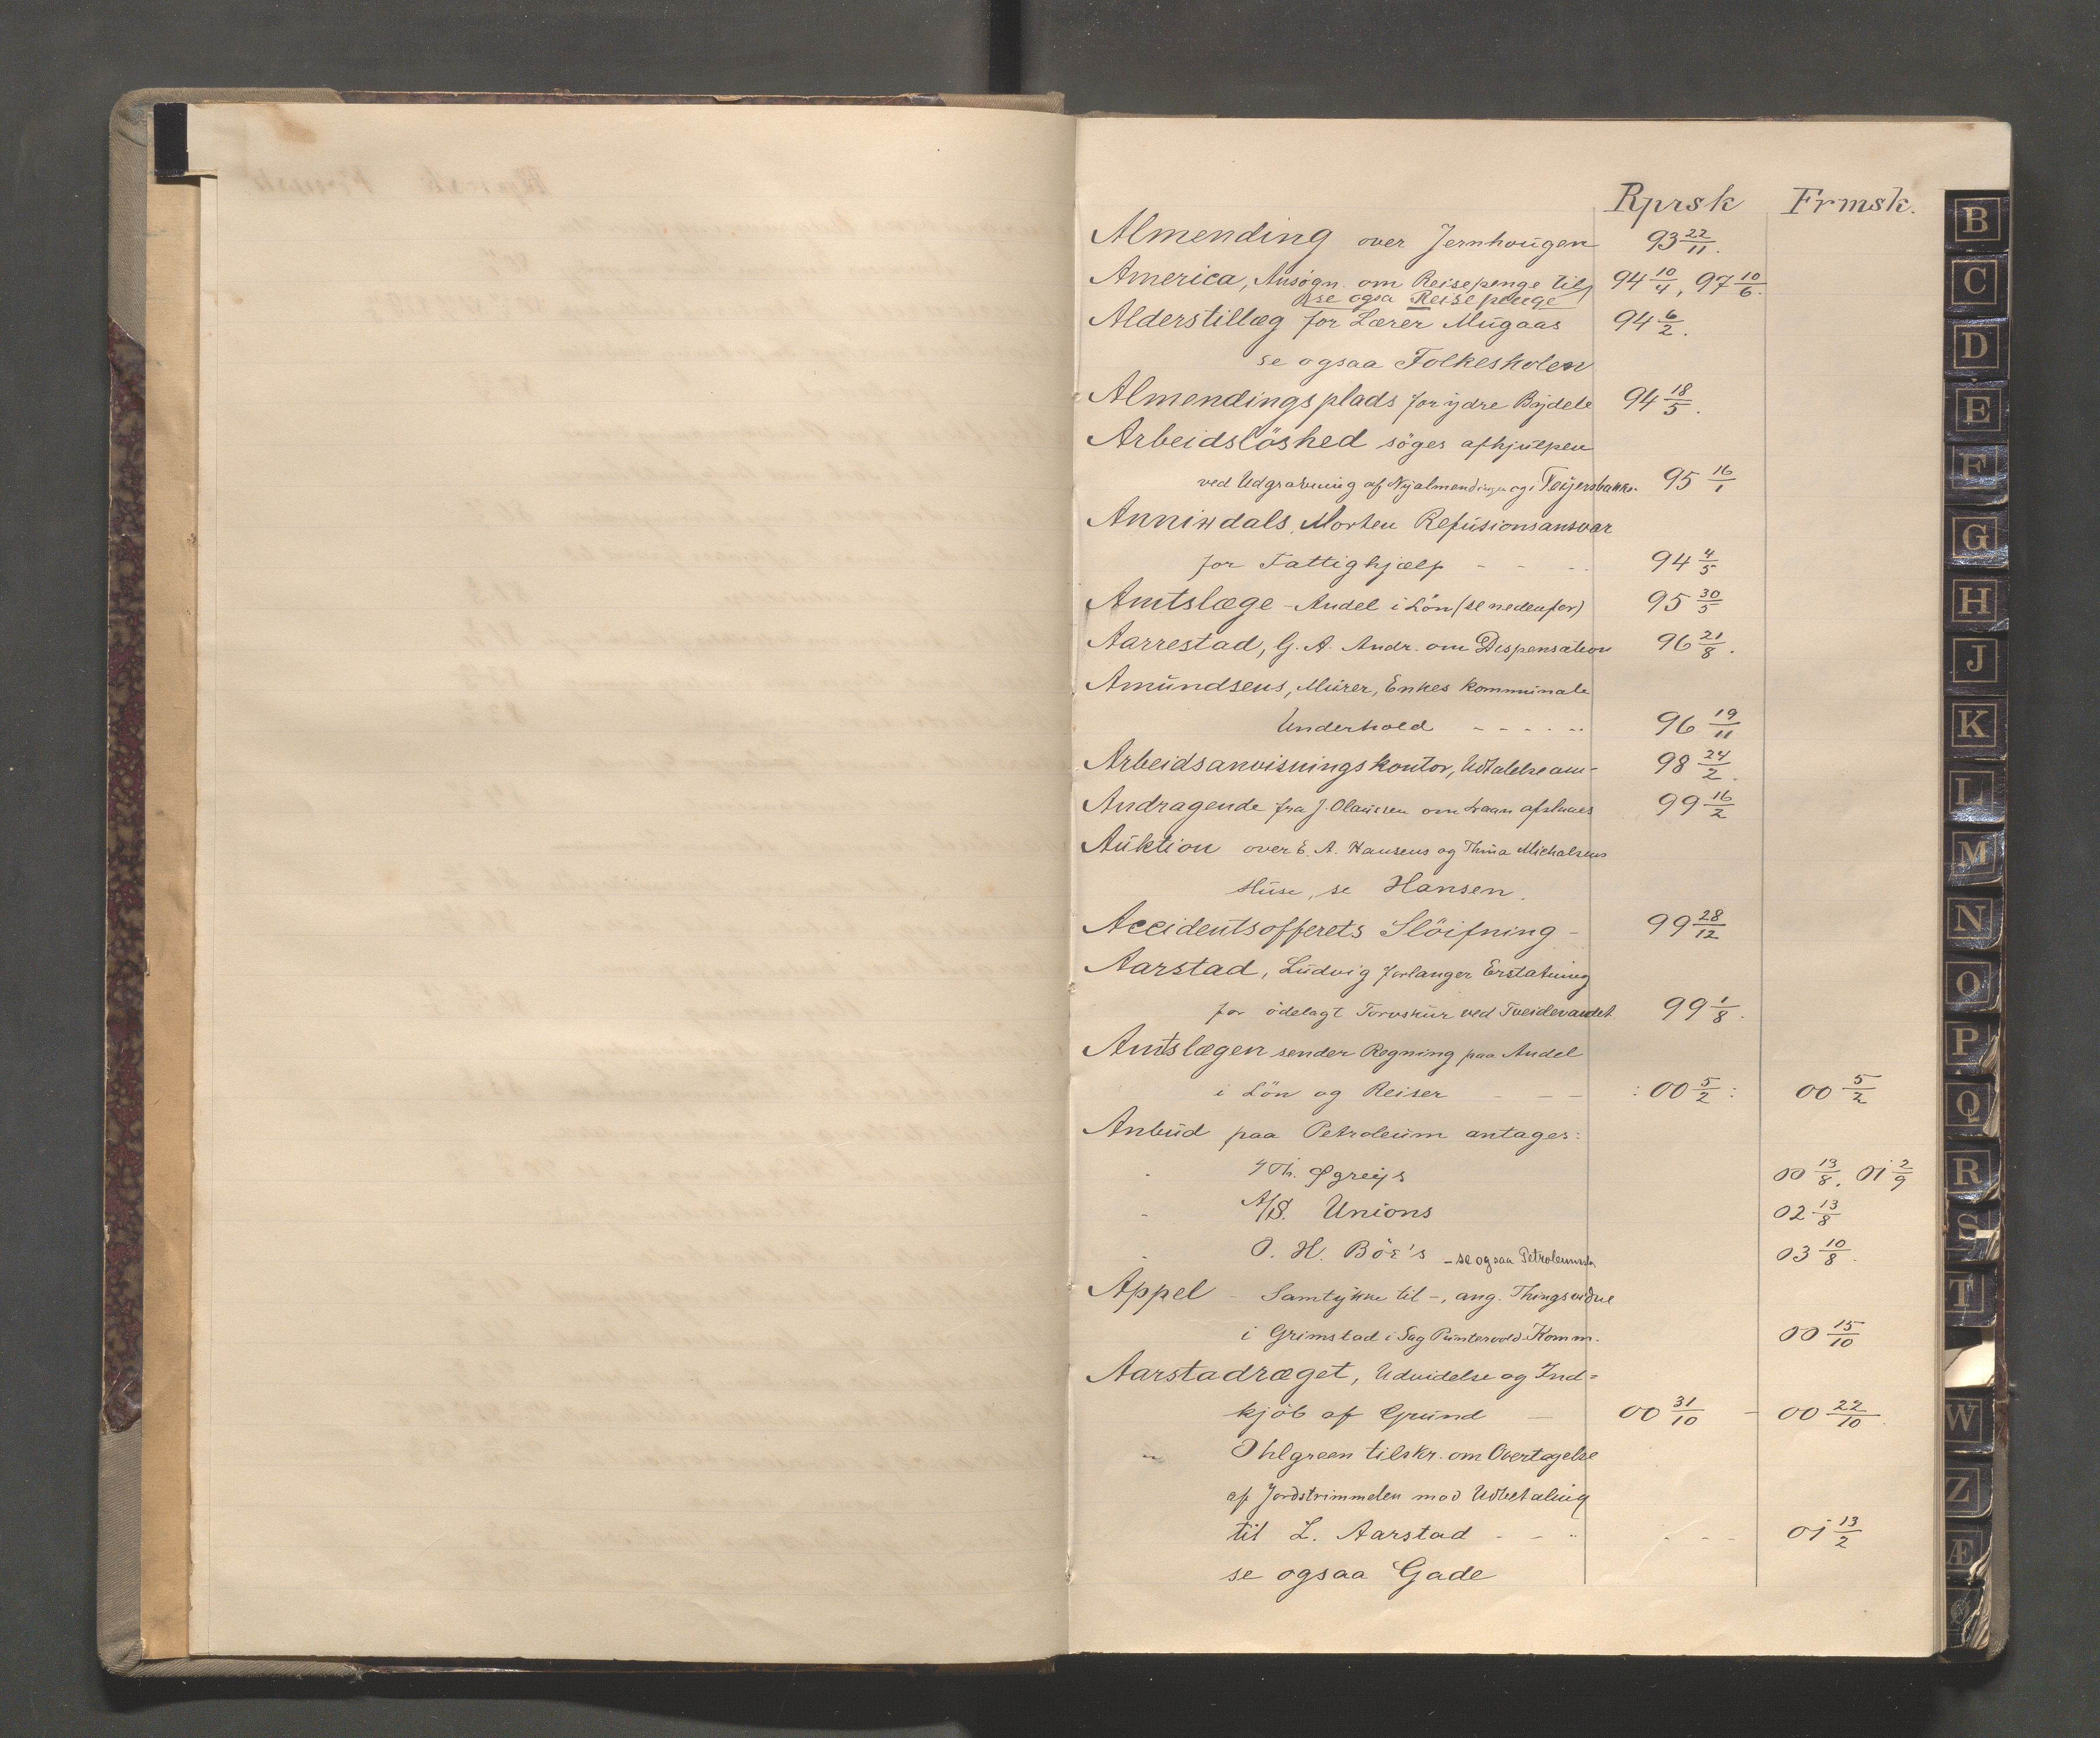 Rprsk Frmsk.
Almending over Jernhougen 93 22/11.
America, Ansögn. om Reisepenge til 94 10/4, 97 10/6.
se ogsa Reisepenge
Alderstillæg for Lærer Mugaas 94 6/2.
se ogsaa Folkeskolen
Almendingsplads for ydre Bydele 94 18/5.
Arbeidslöshed söges afhjulpen
ved Udgravning af Nyalmendingen og i 95 16/1
Annindals, Morten Refusionsansvar
for Fattighjælp - - - 94 4/5
Amtslæge - Andel i Lön (se nedenfor) 95 30/5
Aarrestad, G. A. Andr. om Dispensation 96 21/8.
Amundsens, Murer, Enkes kommunale
Underhold - - - - - 96 19/11
Arbeidsanvisningskontor, Udtalelse om - 98 24/2.
Andragende fra J. Olaussen om Laan afslaaes 99 16/2
Auktion over E. A. Hansens og Thina Michalsens
Huse, se Hansen.
Accidentsofferets Slöifning - 99 28/12
Aarstad, Ludvig forlanger Erstatning
for ödelagt Torvskur ved Tveidevandet 99 1/8.
Amtslægen sender Regning paa Andel
i Lön og Reiser - - - : 00 5/2 : 00 5/2
Anbud paa Petroleum antages:
- Th. Øgreys 00 13/8. 01 2/9
- A/S. Unions 02 13/8
- O. H. Böe's - se ogsaa 03 10/8.
Appel - Samtykke til -, ang. Thingsvidne
i Grimstad i Sag Puntervold. Komm. 00 15/10
Aarstadræget, Udvidelse og Ind=
kjöb af Grund - 00 31/10 - 00 22/10.
" Ohlgreen tilskr. om Overtagelse
af Jordstrimmelen mod Udbetaling
til L. Aarstad - - - - - - 01 13/2
se ogsaa Gade
B
C
D
E
F
G
H
J
K
L
M
N
O
P
Q
R
S
T
W
Z
Æ
Ø